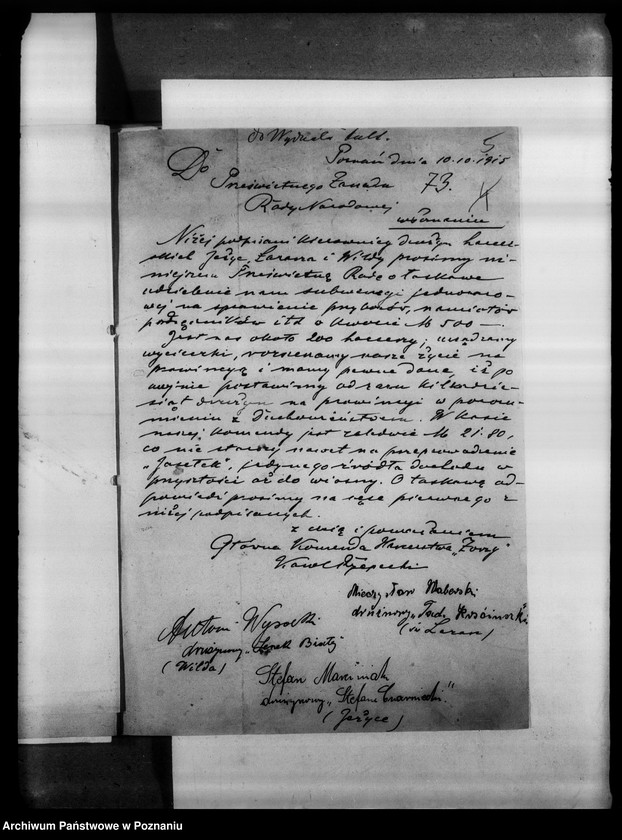 do Wydziału kult.
Poznań dnia 10.10.1915
5
Do
Prześwietnego Zarządu 73.
Rady Narodowej
w Poznaniu
Niżej podpisani kierownicy drużyn harcer-
skich Jeżyc, Łazarza i Wildy prosimy ni-
niejszem Prześwietną Radę o łaskawe
udzielenie nam subwencji jednorazo-
wej na sprawienie przyborów, namiotów
podręczników itd o kwocie M 500 —.
Jest nas około 200 harcerzy, urządzamy
wycieczki, rozszerzamy nasze życie na
prowincję i mamy pewne dane, iż po
wojnie postawimy od razu kilkadzie-
siąt drużyn na prowincji w porozu-
mieniu z Duchowieństwem. W kasie
naszej komendy jest zaledwie M 21.80,
co nie starczy nawet na przeprowadzenie
"Jasełek", jedynego źródła dochodu w
przyszłości aż do wiosny. O łaskawą od-
powiedź prosimy na ręce pierwszego z
niżej podpisanych.
z czcią i poważaniem
Główna Komenda Harcerstwa
Karol Rzepecki
Mieczysław
drużynowy "Tad. Kościuszki
(św Łazarz)
Antoni Wysocki
drużynowy
(Wilda)
Stefan Marciniak
drużynowy "Stefana Czarnieckiego"
(Jeżyce)
Archiwum Państwowe w Poznaniu